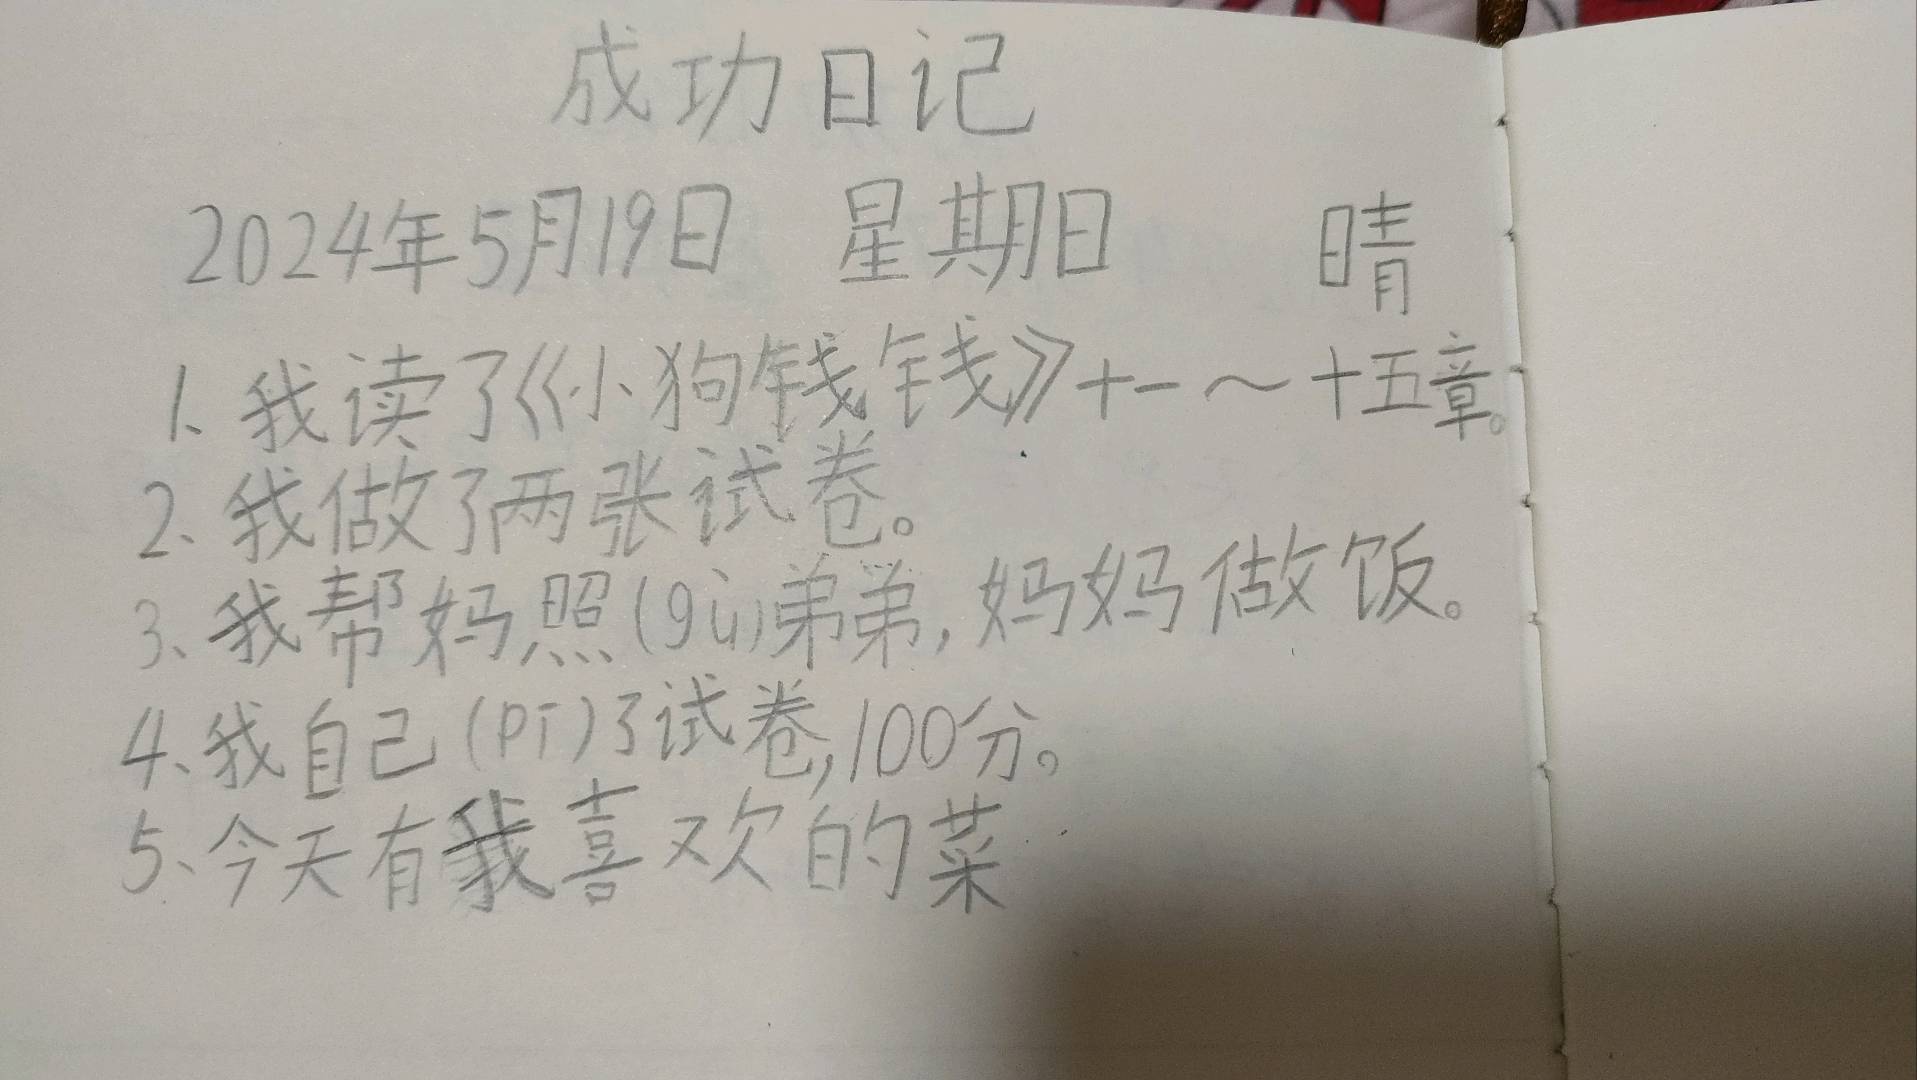 成功日记
2024年5月19日 星期日 晴
1、我读了《小狗钱钱》十一~十五章。
2、我做了两张试卷。
3、我帮妈照(gù)弟弟,妈妈做饭。
4、我自己(pī)了试卷,100分。
5、今天有我喜欢的菜